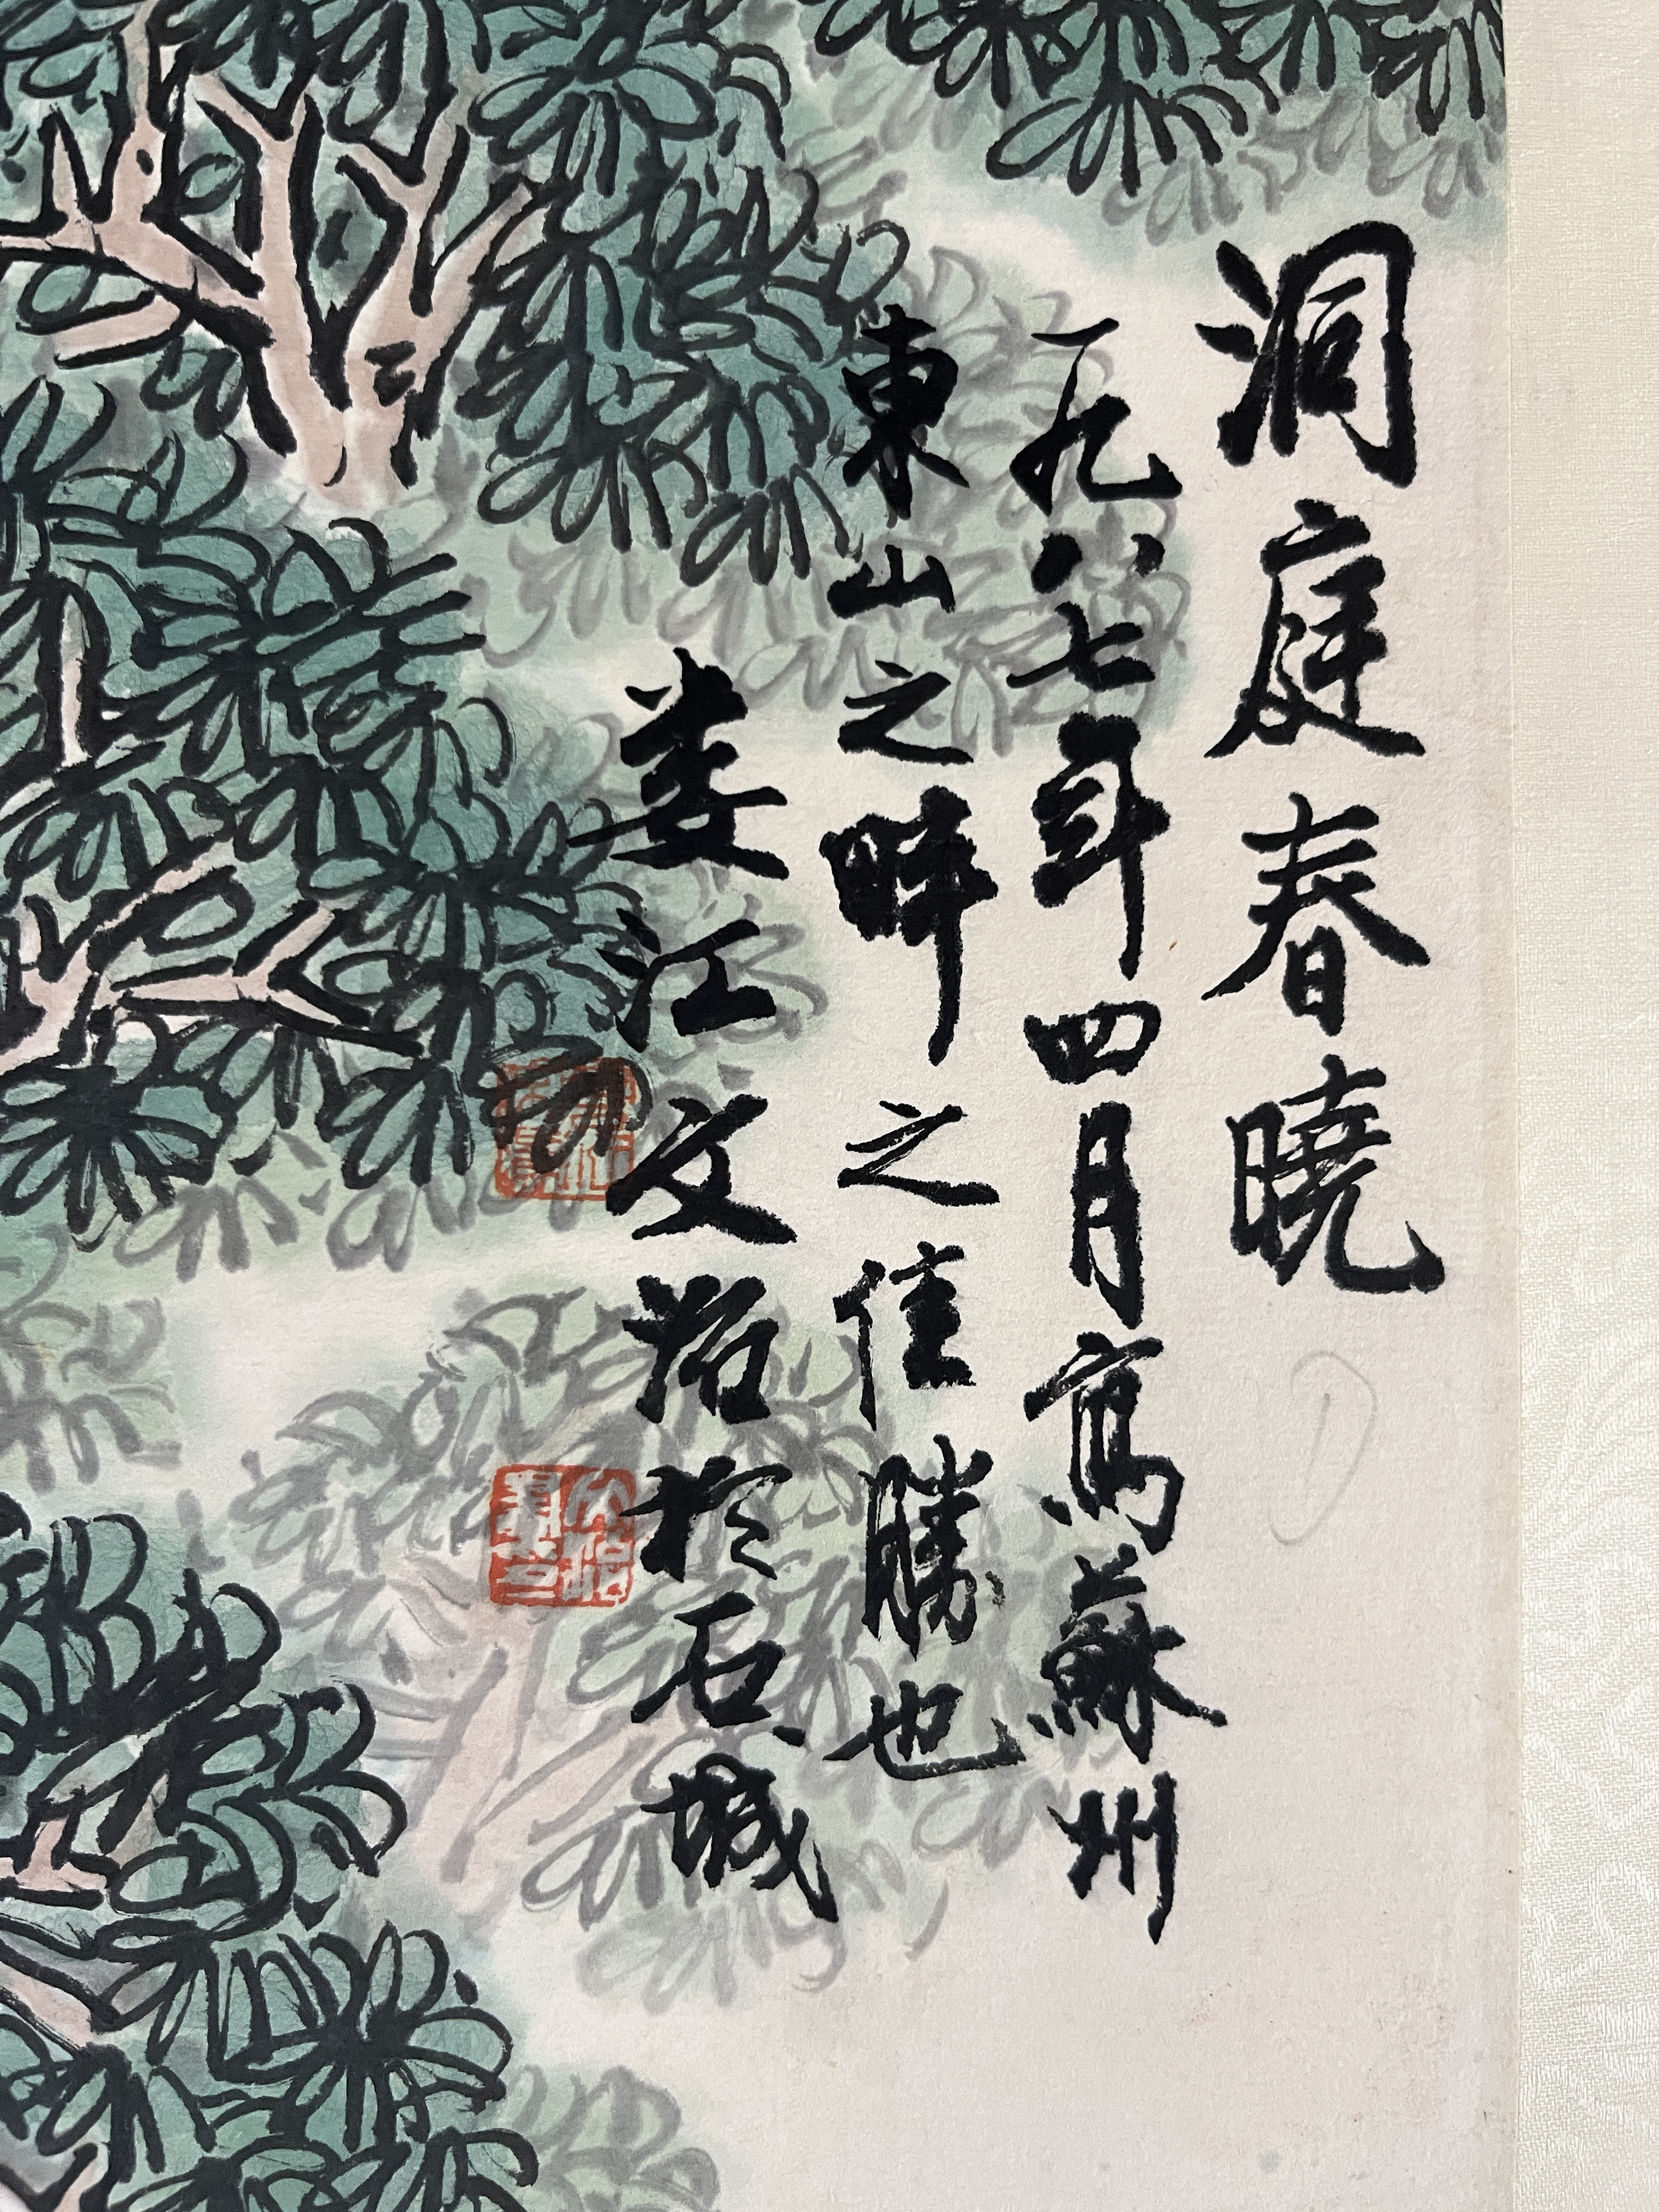 洞庭春曉
一九八七年四月寫蘇州
東山之畔之佳勝也
婁江文治於石城